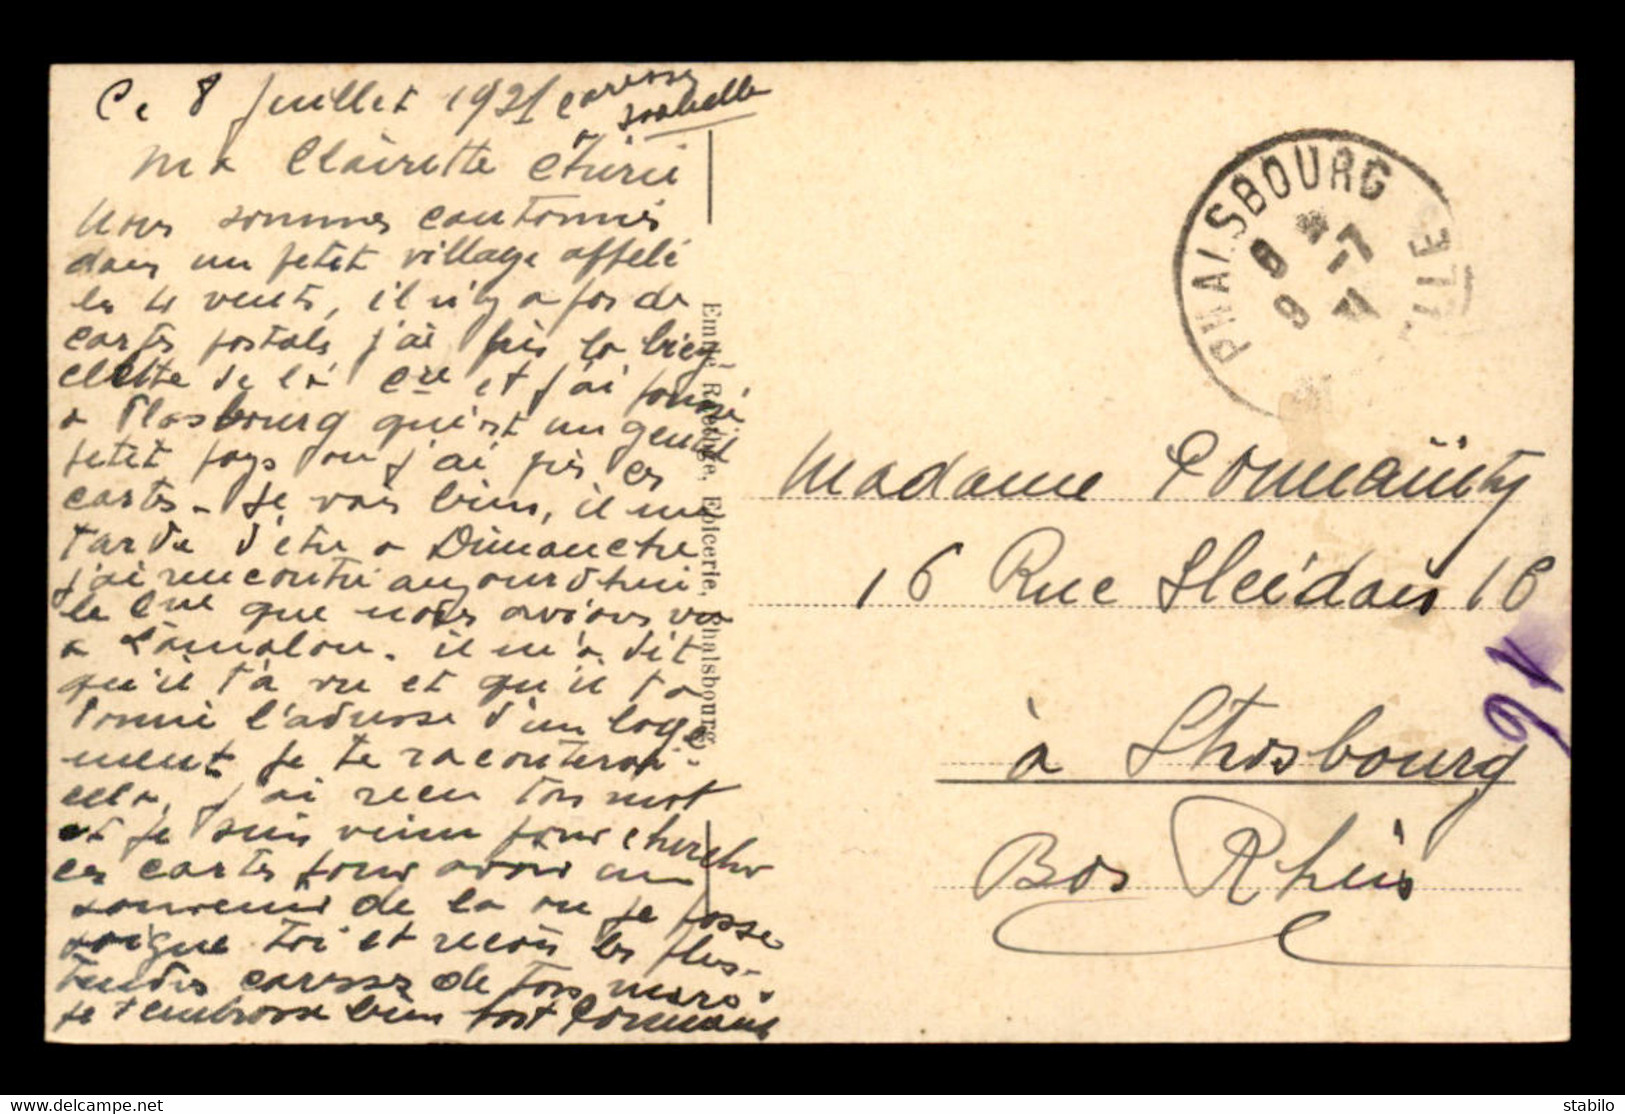 Ce 8 Juillet 1921 caresse
Isabelle
Ma Clairette chérie
Nous sommes cantonnés
dans un petit village appelé
les 4 vents, il n'y a pas de
cartes postales j'ai pris la bicy
clette de la Cie et j'ai poussé
a Phasbourg qui est un gentil
petit pays ou j'ai pris ces
cartes - Je vais bien, il me
tarde d'être a Dimanche
j'ai rencontré aujourd'hui
le que nous avions vu
a Lamalou. il m'a dit
qu'il t'a vu et qu'il t'a
donné l'adresse d'un loge
ment je te raconterai
cela, j'ai recu ton mot
et je suis venu pour chercher
ces cartes pour avoir un
souvenir de la ou je passe
soigne toi et recois les plus
tendres caresses de ton mari
je t'embrasse bien fort
Emile Reduge, Epicerie, Phalsbourg.
PHALSBOURG
9 -7
Madame
16 Rue Sleidan 16
à Strasbourg
Bas Rhin
91
https://www.delcampe.net
stabilo